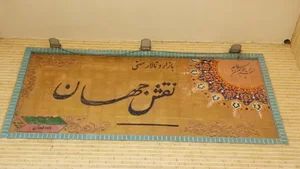 بازار و تالار سنتی
نقش جهان